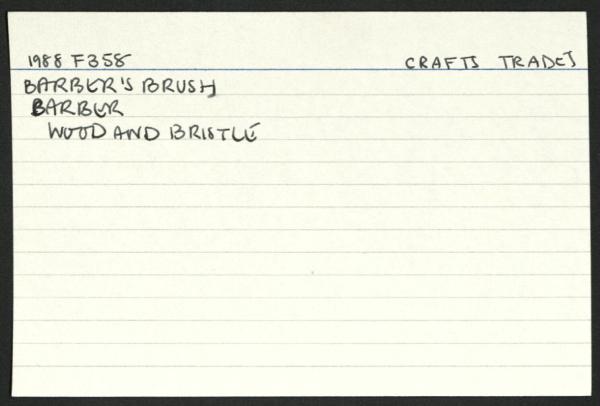 1988 F358 CRAFTS TRADES
BARBER'S BRUSH
BARBER
WOOD AND BRISTLE